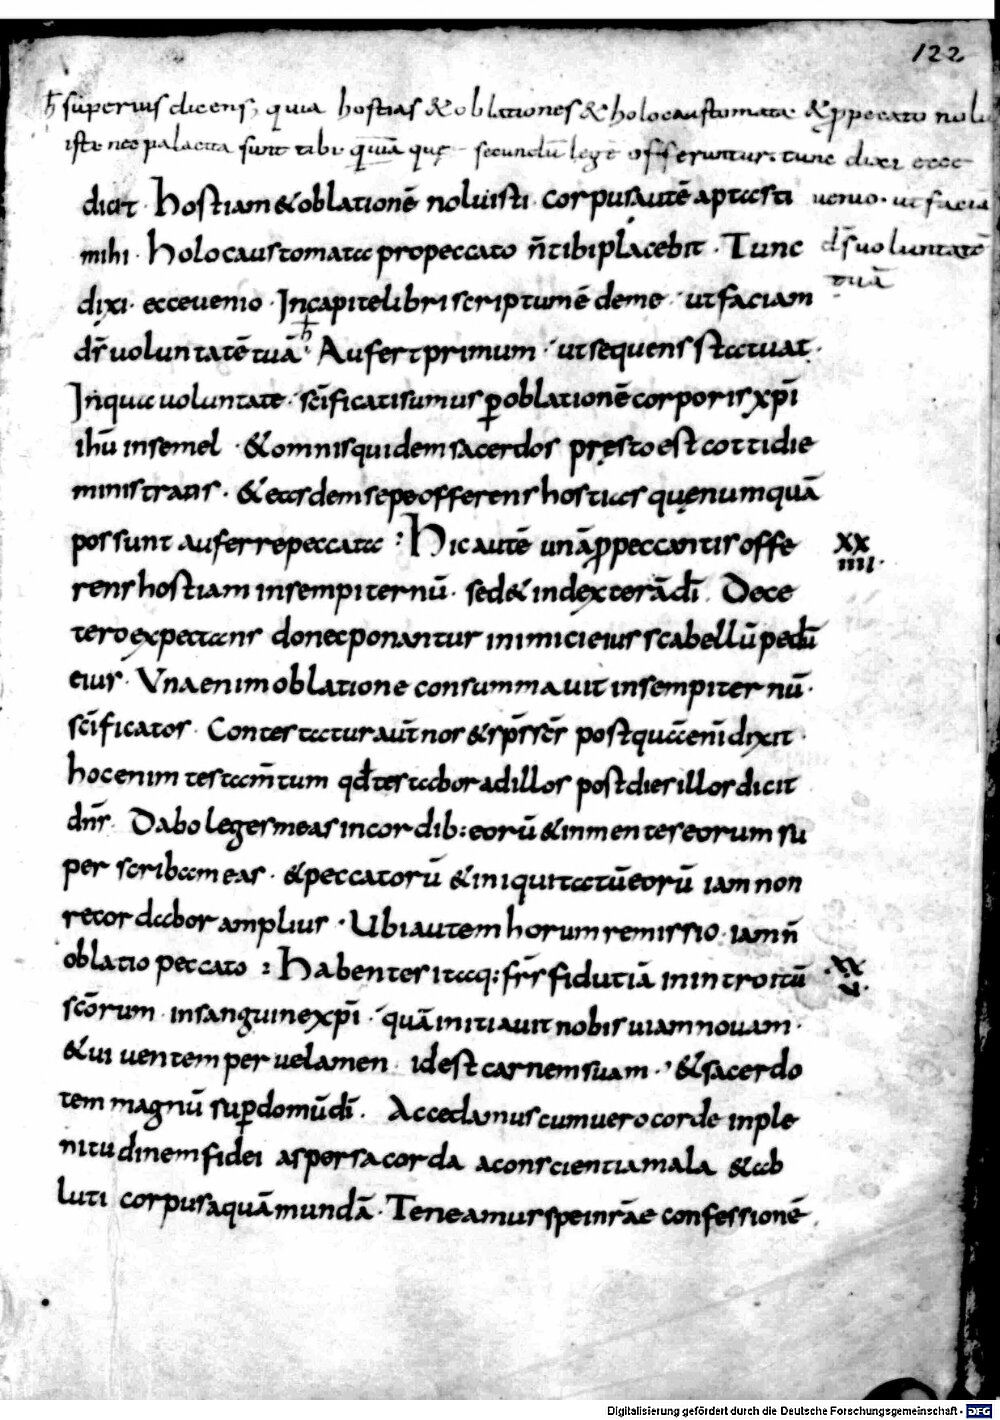 122
h superius dicens, quia hostias & oblationes & holocaustomata & ꝓ peccato nolu
isti nec palacita sunt tibi quiā quę secundū legē offeruntur. tunc dixi ecce
dicit · hostiam & oblationē noluisti · corpus autē aptasti
uenio · ut faciā
mihi · holocaustomata pro peccato n̄ tibi placebit · Tunc
dś uoluntatē
tuā
dixi · ecce uenio · In capite libri scriptum ē de me · ut faciam
dś uoluntatē tuā · h Aufert primum · ut sequens statuat ·
In qua uoluntate · sc̄ificati sumus ꝑ oblationē corporis xp̄i
ihū in semel · & omnis quidem sacerdos pręsto est cottidie
ministrans · & easdem sepe offerens hostias quę numquā
possunt auferre peccata : Hic autē unā ꝓ peccantis offe
XX
IIII ·
rens hostiam in sempiternū · sed & in dextera d̄i . De ce
tero expectans donec ponantur inimici eius scabellū pedū
eius · Una enim oblatione consummauit in sempiternū ·
sc̄ificatos · Contestatur aūt nos & sp̄s sc̄s postquā enī dixit ·
hoc enim testam̄tum qd̄ testabor ad illos post dies illos dicit
dn̄s · Dabo leges meas in cordib: eorū & in mentes eorum su
per scribam eas · & peccatorū & iniquitatū eorū iam non
recordabor amplius · Ubi autem horum remissio · iam n̄
oblatio peccato : Habentes itaq: fr̄s fidutiā in introitū
XX
V ·
sc̄orum · in sanguine xp̄i · quā initiauit nobis uiam nouam ·
& uiuentem per uelamen · id est carnem suam · & sacerdo
tem magnū suꝑ domū d̄i . Accedamus cum uero corde in ple
nitudinem fidei aspersa corda a conscientia mala & ab
luti corpus aquā mundā · Teneamus spei nr̄ae confessionē ·
Digitalisierung gefördert durch die Deutsche Forschungsgemeinschaft - DFG